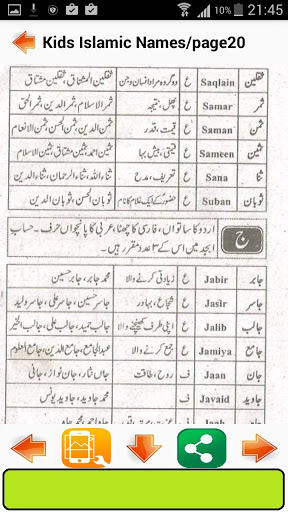 21:45
Kids Islamic Names/page20
ثقلین Saqlain ع دو گروہ مراد انسان و جن
ثمر Samar ع پھل، نتیجہ ثمر الاسلام، ثمر الدین، ثمر الحق
ثمن Saman ع قیمت، قدر ثمن الدین، ثمن الحسن، ثمن الانعام
ثمین Sameen ع قیمتی، بیش بہا ثمین احمد، ثمین مشتاق، ثمین الاسلام
ثنا Sana ع تعریف، مدح ثناء اللہ، ثناء الرحمان، ثناء الدین
ثوبان Suban ع حضور کے ایک غلام کا نام ثوبان الحسن، ثوبان الدین
ج اردو کا ساتواں، فارسی کا چھٹا، عربی کا پانچواں حرف۔ حساب
ابجد میں اس کے ۳ عدد مقرر ہیں۔
جابر Jabir ع زیادتی کرنے والا محمد جابر، جابر حسین
جاسر Jasir ع شجاع، بہادر جاسر حسین، جاسر علی، جاسر ولید
جالب Jalib ع اپنی طرف کھینچنے والا جالب حمید، جالب علی، جالب الخیر
جامع Jamiya ع جمع کرنے والا عبدالجامع، جامع الدین، جامع العلوم
جان Jaan ف روح، طاقت جاں نثار، جان نواز، جانی
جاوید Javaid ف محمد جاوید، جاوید یونس